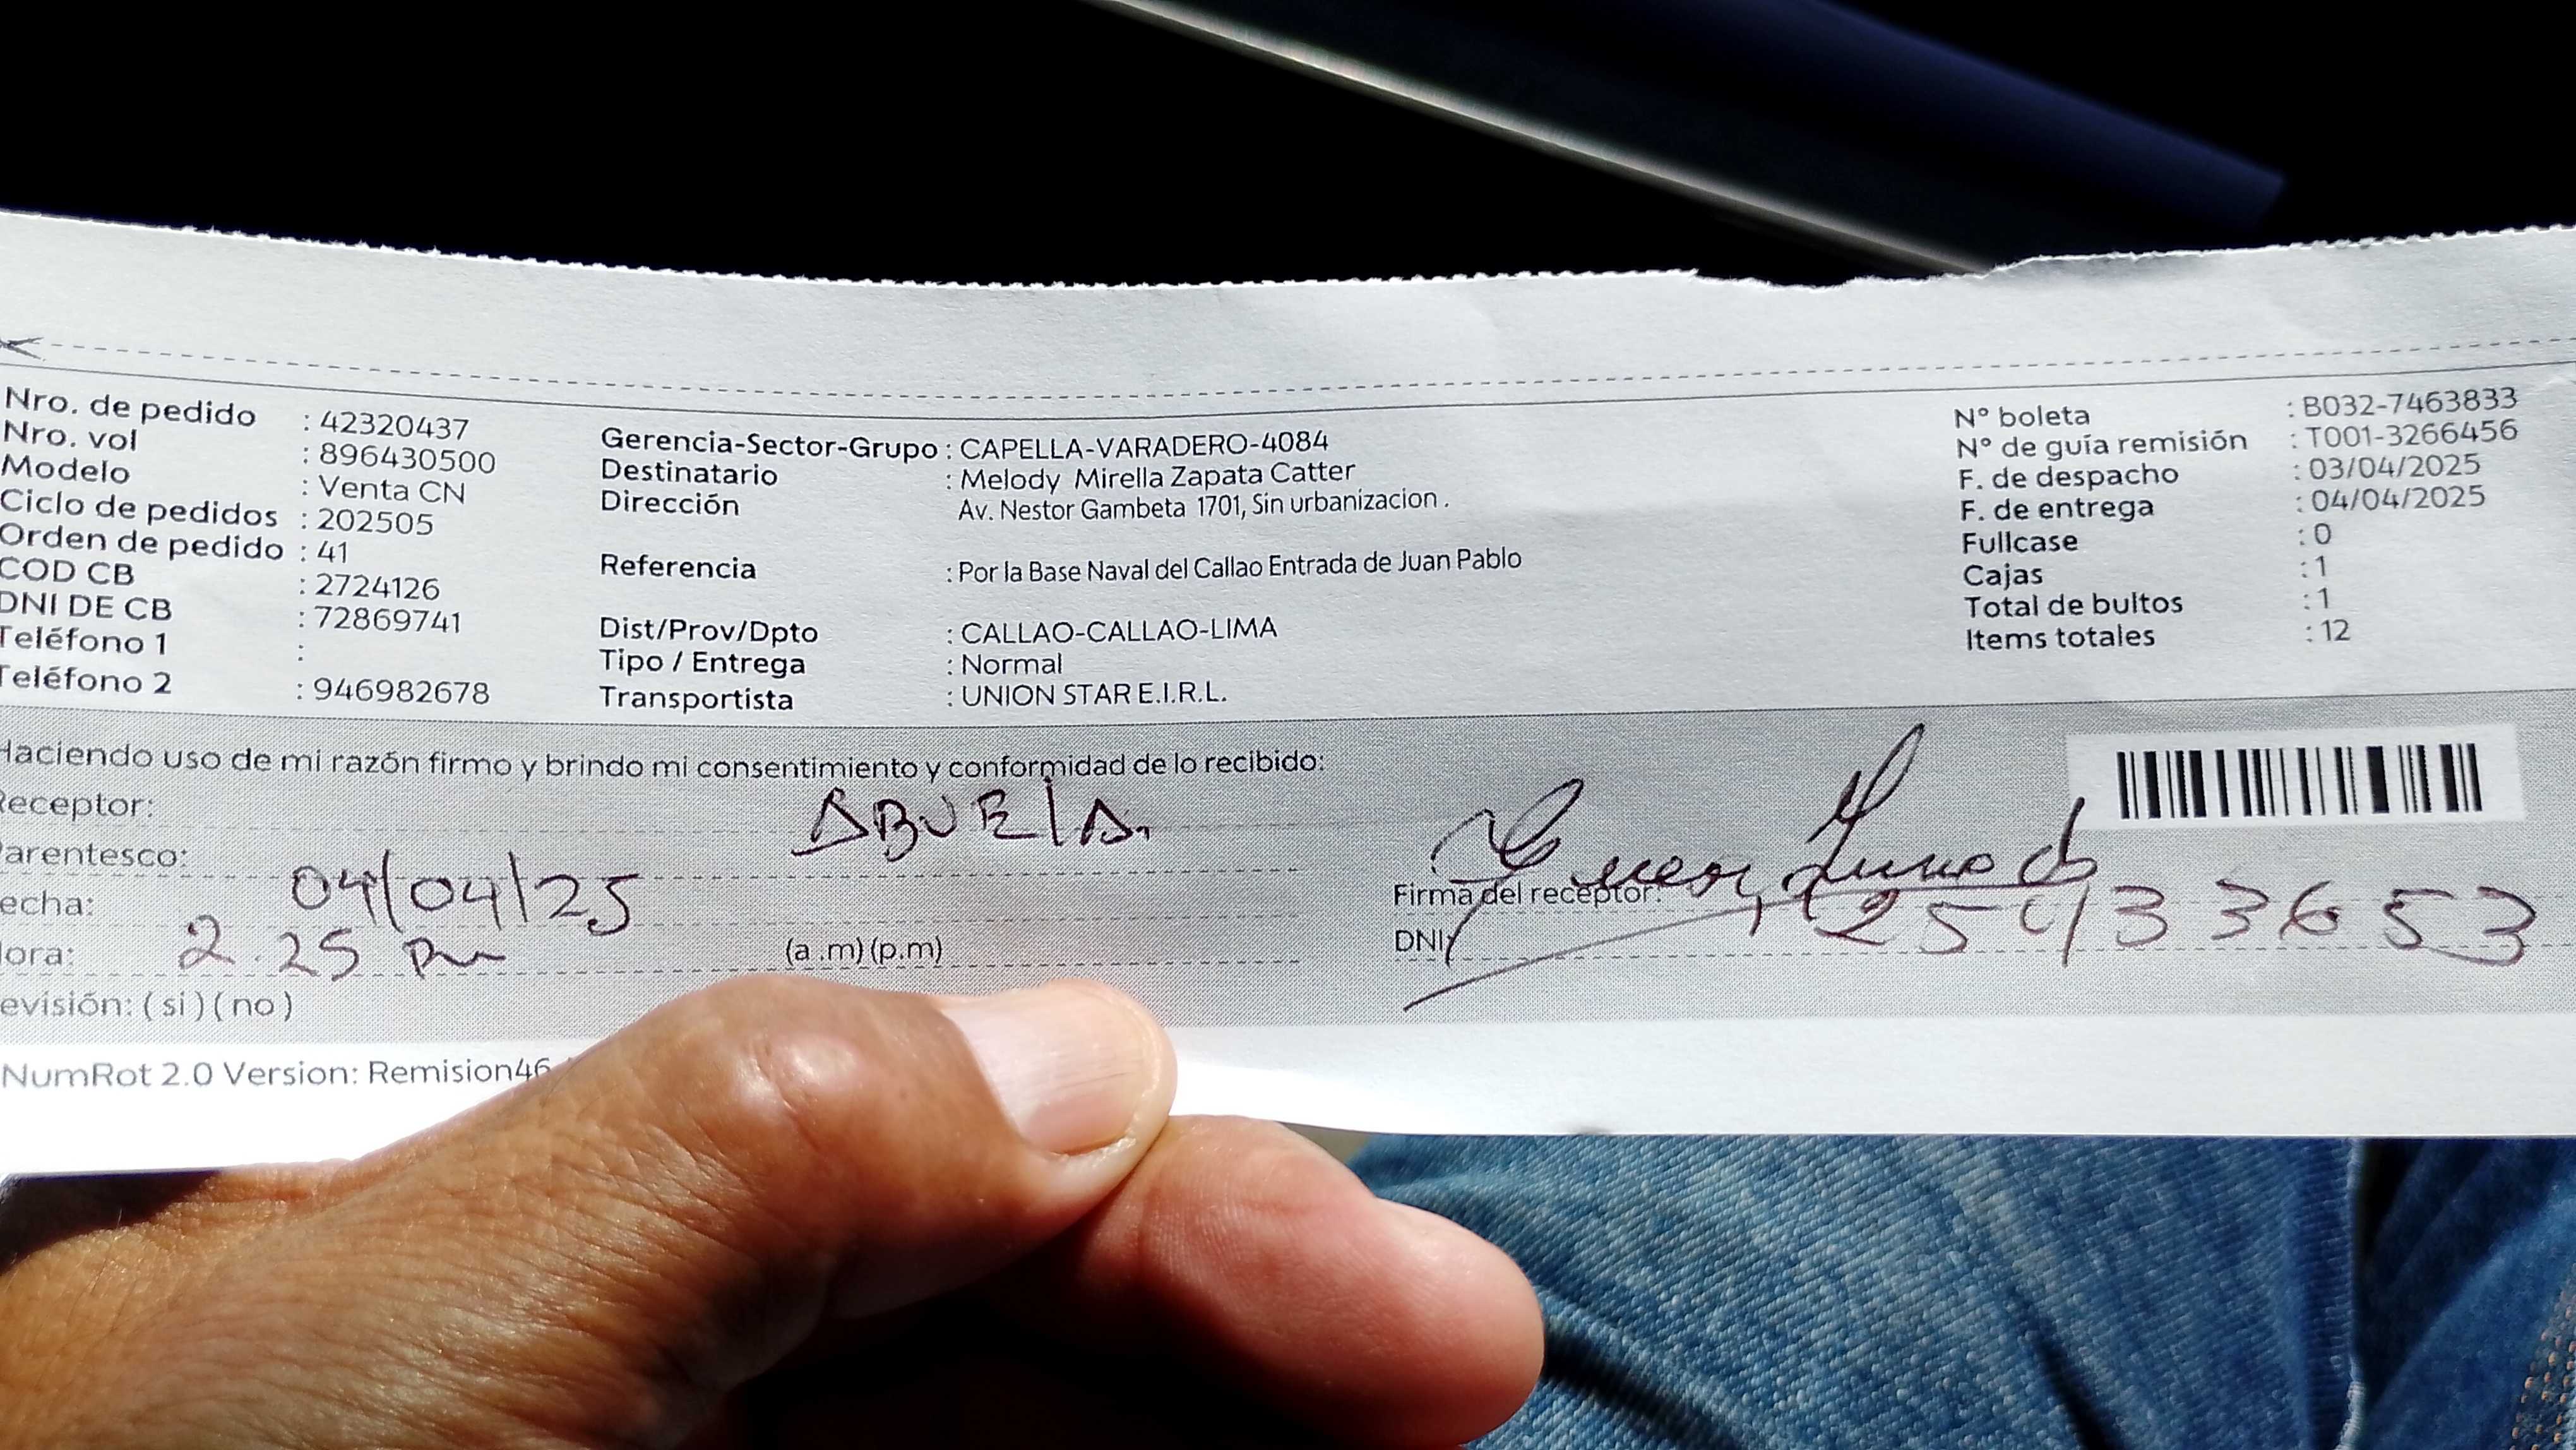 Nro. de pedido : 42320437
Nro. vol : 896430500
Modelo : Venta CN
Ciclo de pedidos : 202505
Orden de pedido : 41
COD CB : 2724126
DNI DE CB : 72869741
Teléfono 1 :
Teléfono 2 : 946982678
Gerencia-Sector-Grupo : CAPELLA-VARADERO-4084
Destinatario : Melody Mirella Zapata Catter
Dirección Av. Nestor Gambeta 1701, Sin urbanizacion .
Referencia : Por la Base Naval del Callao Entrada de Juan Pablo
Dist/Prov/Dpto : CALLAO-CALLAO-LIMA
Tipo / Entrega : Normal
Transportista : UNION STAR E.I.R.L.
N° boleta : B032-7463833
N° de guía remisión : T001-3266456
F. de despacho : 03/04/2025
F. de entrega : 04/04/2025
Fullcase : 0
Cajas : 1
Total de bultos : 1
Items totales : 12
Haciendo uso de mi razón firmo y brindo mi consentimiento y conformidad de lo recibido:
Receptor:
ABUELA.
Parentesco:
Fecha: 04/04/25
Hora: 2.25 Pm (a .m) (p.m)
Revisión: ( si ) ( no )
Firma del receptor:
DNI
NumRot 2.0 Version: Remision46